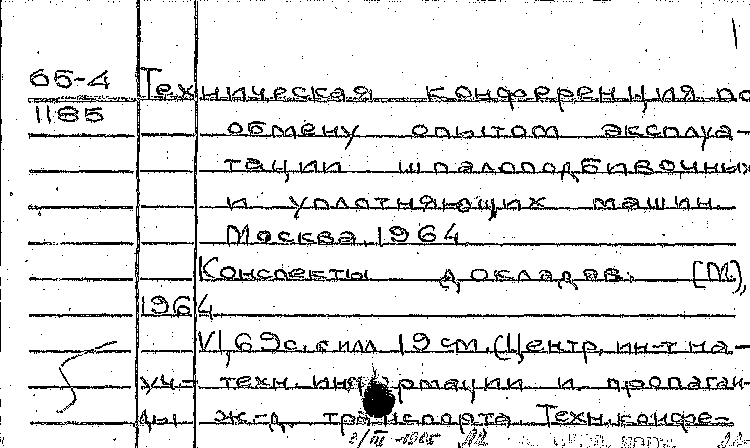 65-4 Техническая конференция по
1185
обмену опытом эксплуа-
тации шпалоподбивочных
и уплотняющих машин.
Москва, 1964
Конспекты докладов. [М],
1964
VI, 69с. с илл. 19 см. (Центр. ин-т на-
уч- техн. информации и пропаган-
ды ж-д. транспорта. Техн. конфе-